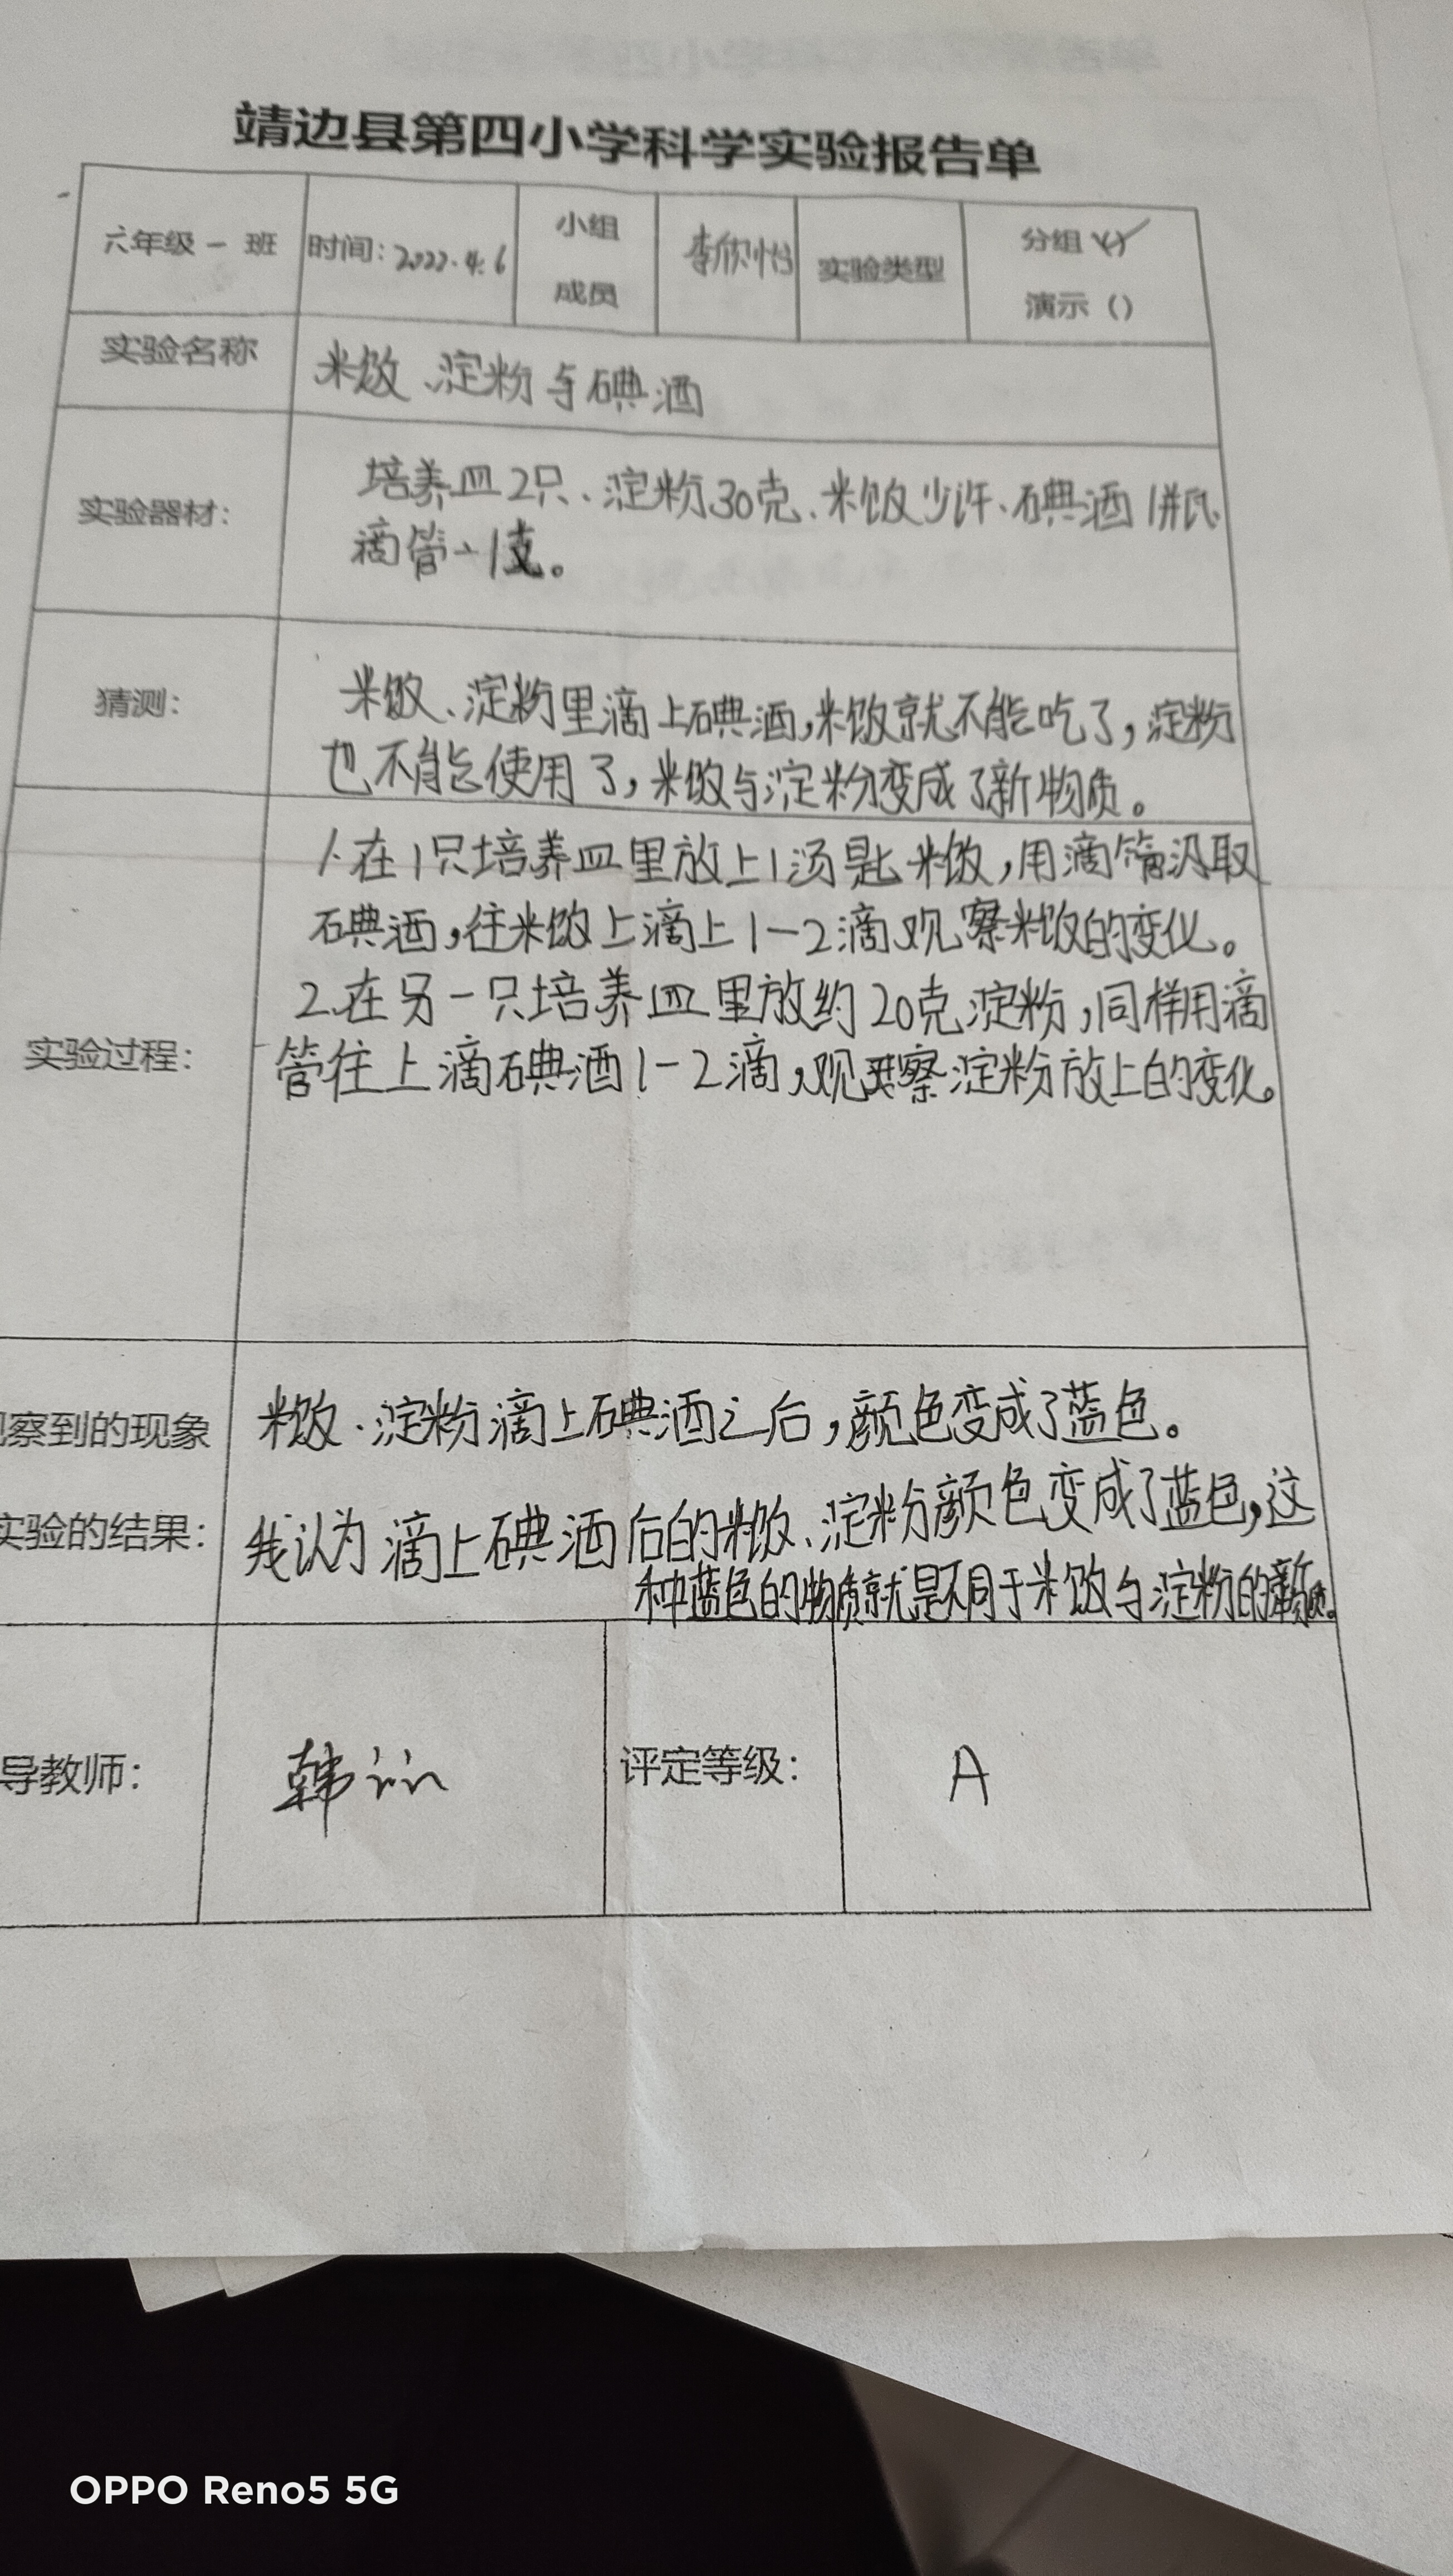 靖边县第四小学科学实验报告单
六年级一班 时间：2022.4.6 小组成员 李欣怡 实验类型 分组（√） 演示（）
实验名称 米饭、淀粉与碘酒
实验器材： 培养皿2只、淀粉30克、米饭少许、碘酒1瓶、
滴管1支。
猜测： 米饭、淀粉里滴上碘酒，米饭就不能吃了，淀粉
也不能使用了，米饭与淀粉变成了新物质。
1.在1只培养皿里放上1汤匙米饭，用滴管汲取
碘酒，往米饭上滴上1-2滴观察米饭的变化。
2.在另一只培养皿里放约20克淀粉，同样用滴
实验过程： 管往上滴碘酒1-2滴，观察淀粉放上的变化。
察到的现象 米饭、淀粉滴上碘酒之后，颜色变成了蓝色。
实验的结果： 我认为滴上碘酒后的米饭、淀粉颜色变成了蓝色，这
种蓝色的物质就是不同于米饭与淀粉的
导教师： 韩 评定等级： A
OPPO Reno5 5G